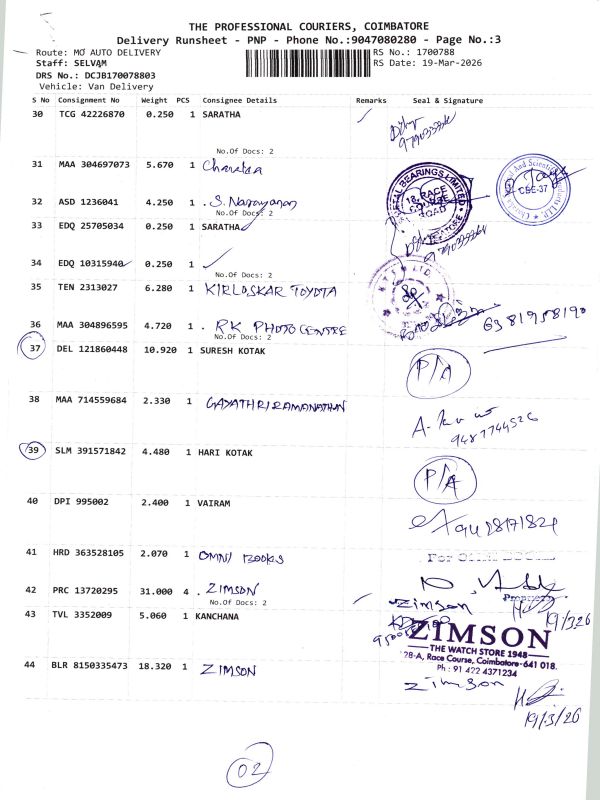 THE PROFESSIONAL COURIERS, COIMBATORE
Delivery Runsheet - PNP - Phone No.:9047080280 - Page No.:3
Route: MO AUTO DELIVERY RS No.: 1700788
Staff: SELVAM RS Date: 19-Mar-2026
DRS No.: DCJB170078803
Vehicle: Van Delivery
S No Consignment No Weight PCS Consignee Details Remarks Seal & Signature
30 TCG 42226870 0.250 1 SARATHA
No.Of Docs: 2
31 MAA 304697073 5.670 1
32 ASD 1236041 4.250 1 . S. Narayanan
No.Of Docs: 2
33 EDQ 25705034 0.250 1 SARATHA
34 EDQ 10315940 0.250 1
No.Of Docs: 2
35 TEN 2313027 6.280 1 KIRLOSKAR TOYOTA
36 MAA 304896595 4.720 1 . RK PHOTO CENTRE 6381958190
No.Of Docs: 2
37 DEL 121860448 10.920 1 SURESH KOTAK P/A
38 MAA 714559684 2.330 1 GAYATHRI RAMANATHAN
9487744526
39 SLM 391571842 4.480 1 HARI KOTAK P/A
40 DPI 995002 2.400 1 VAIRAM
41 HRD 363528105 2.070 1 OMNI BOOKS
42 PRC 13720295 31.000 4 . ZIMSON
No.Of Docs: 2 Zimson
43 TVL 3352009 5.060 1 KANCHANA 19/3/26
ZIMSON
THE WATCH STORE 1948
28-A, Race Course, Coimbatore-641 018.
Ph : 91 422 4371234
44 BLR 8150335473 18.320 1 ZIMSON Zimson
19/3/26
02